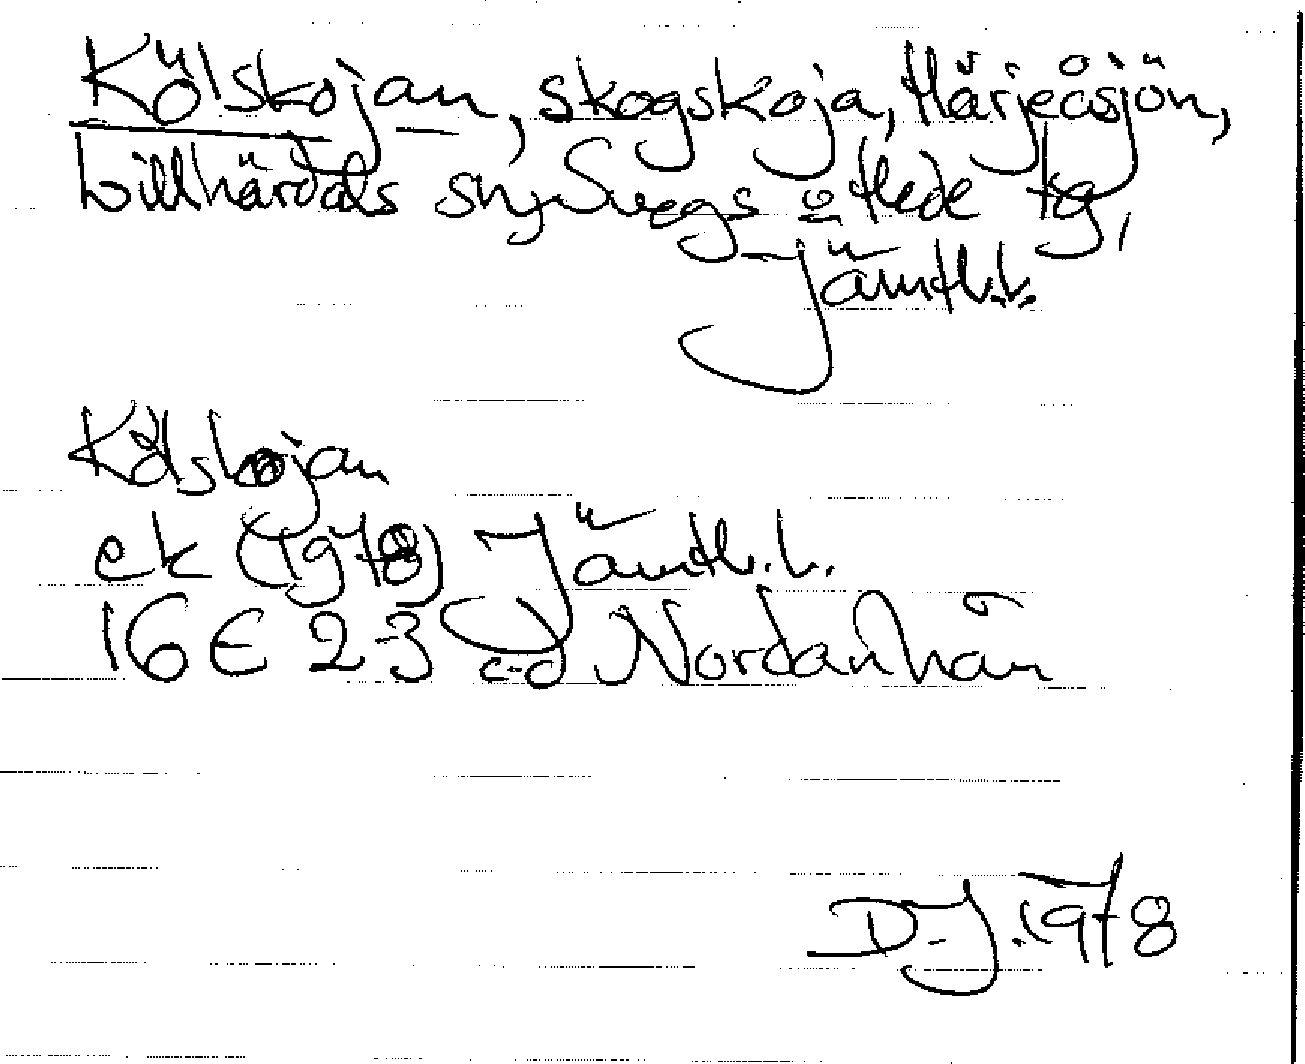 Kölskojan, skogskoja, Härjeåsjön,
Lillhärdals sn, Svegs o Hede tg,
Jämtl.l.
Kölskojan
ek (1978) Jämtl.l.
16 E 2-3 c-d Nordanhån
D-J. 1978